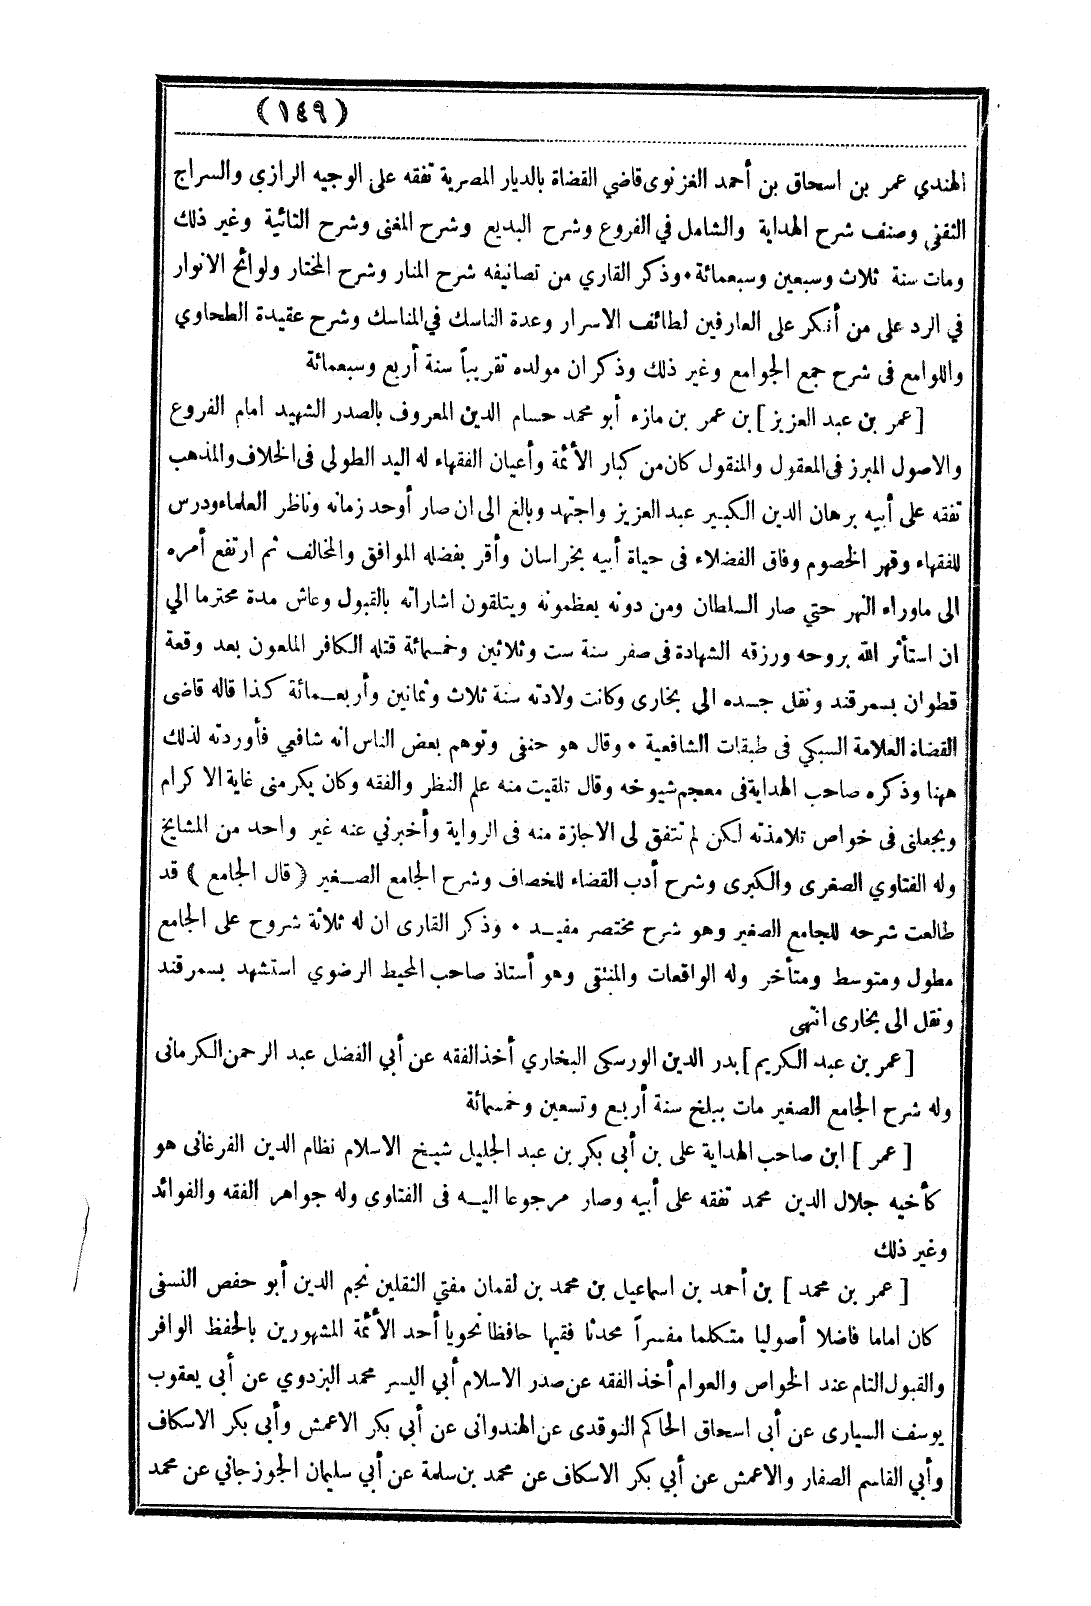 (١٤٩)
الهندي عمر بن اسحاق بن أحمد الغزنوى قاضي القضاة بالديار المصرية تفقه على الوجيه الرازي والسراج
الثقفى وصنف شرح الهداية والشامل في الفروع وشرح البديع وشرح المغنى وشرح التائية وغير ذلك
ومات سنة ثلاث وسبعين وسبعمائة • وذكر القاري من تصانيفه شرح المنار وشرح المختار ولوائح الانوار
في الرد على من أنكر على العارفين لطائف الاسرار وعدة الناسك في المناسك وشرح عقيدة الطحاوي
واللوامع فى شرح جمع الجوامع وغير ذلك وذكر ان مولده تقريباً سنة أربع وسبعمائة
[عمر بن عبد العزيز] بن عمر بن مازه أبو محمد حسام الدين المعروف بالصدر الشهيد امام الفروع
والاصول المبرز فى المعقول والمنقول كان من كبار الأئمة وأعيان الفقهاء له اليد الطولي فى الخلاف والمذهب
تفقه على أبيه برهان الدين الكبير عبد العزيز واجتهد وبالغ الى ان صار أوحد زمانه وناظر العلماء ودرس
للفقهاء وقهر الخصوم وفاق الفضلاء فى حياة أبيه بخراسان وأقر بفضله الموافق والمخالف ثم ارتفع أمره
الى ماوراء النهر حتي صار السلطان ومن دونه يعظمونه ويتلقون اشاراته بالقبول وعاش مدة محترما الي
ان استأثر الله بروحه ورزقه الشهادة فى صفر سنة ست وثلاثين وخمسمائة قتله الكافر الملعون بعد وقعة
قطوان بسمرقند ونقل جسده الي بخارى وكانت ولادته سنة ثلاث وثمانين وأربعمائة كذا قاله قاضى
القضاة العلامة السبكي فى طبقات الشافعية • وقال هو حنفى وتوهم بعض الناس انه شافعي فأوردته لذلك
ههنا وذكره صاحب الهداية فى معجم شيوخه وقال تلقيت منه علم النظر والفقه وكان يكرمنى غاية الاكرام
ويجعلنى فى خواص تلامذته لكن لم تتفق لى الاجازة منه فى الرواية وأخبرني عنه غير واحد من المشايخ
وله الفتاوي الصغرى والكبرى وشرح أدب القضاء للخصاف وشرح الجامع الصغير (قال الجامع) قد
طالعت شرحه للجامع الصغير وهو شرح مختصر مفيد • وذكر القارى ان له ثلاثة شروح على الجامع
مطول ومتوسط ومتأخر وله الواقعات والمنتقى وهو أستاذ صاحب المحيط الرضوي استشهد بسمرقند
ونقل الى بخارى انتهى
[عمر بن عبد الكريم] بدر الدين الورسكى البخاري أخذ الفقه عن أبي الفضل عبد الرحمن الكرمانى
وله شرح الجامع الصغير مات ببلخ سنة أربع وتسعين وخمسمائة
[عمر] ابن صاحب الهداية على بن أبى بكر بن عبد الجليل شيخ الاسلام نظام الدين الفرغانى هو
كأخيه جلال الدين محمد تفقه على أبيه وصار مرجوعا اليه فى الفتاوى وله جواهر الفقه والفوائد
وغير ذلك
[عمر بن محمد] بن أحمد بن اسماعيل بن محمد بن لقمان مفتي الثقلين نجم الدين أبو حفص النسفى
كان اماما فاضلا أصوليا متكلما مفسراً محدثا فقيها حافظا نحويا أحد الأئمة المشهورين بالحفظ الوافر
والقبول التام عند الخواص والعوام أخذ الفقه عن صدر الاسلام أبي اليسر محمد البزدوي عن أبى يعقوب
يوسف السيارى عن أبى اسحاق الحاكم النوقدى عن الهندوانى عن أبي بكر الاعمش وأبي بكر الاسكاف
وأبي القاسم الصفار والاعمش عن أبي بكر الاسكاف عن محمد بن سلمة عن أبي سليمان الجوزجاني عن محمد